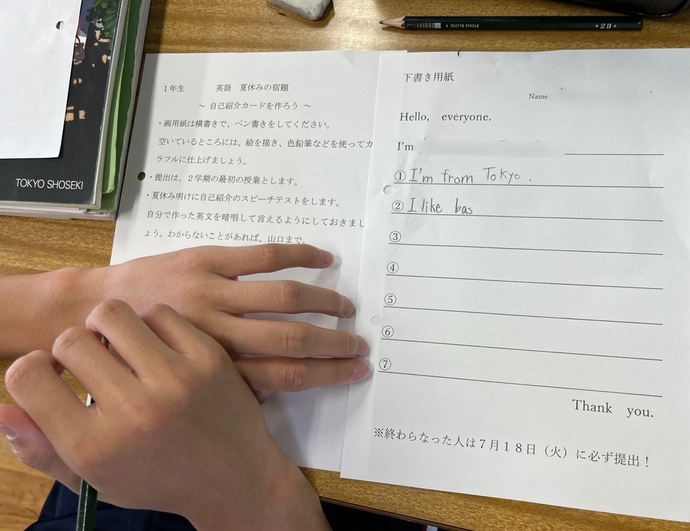 1年生 英語 夏休みの宿題
~ 自己紹介カードを作ろう ~
・画用紙は横書きで、ペン書きをしてください。
空いているところには、絵を描き、色鉛筆などを使ってカ
ラフルに仕上げましょう。
・提出は、2学期の最初の授業とします。
・夏休み明けに自己紹介のスピーチテストをします。
自分で作った英文を暗唱して言えるようにしておきまし
ょう。わからないことがあれば、山口まで。
下書き用紙
Name
Hello, everyone.
I'm
① I'm from Tokyo.
② I like bas
③
④
⑤
⑥
⑦
Thank you.
※終わらなった人は7月18日(火)に必ず提出！
TOKYO SHOSEKI
2B